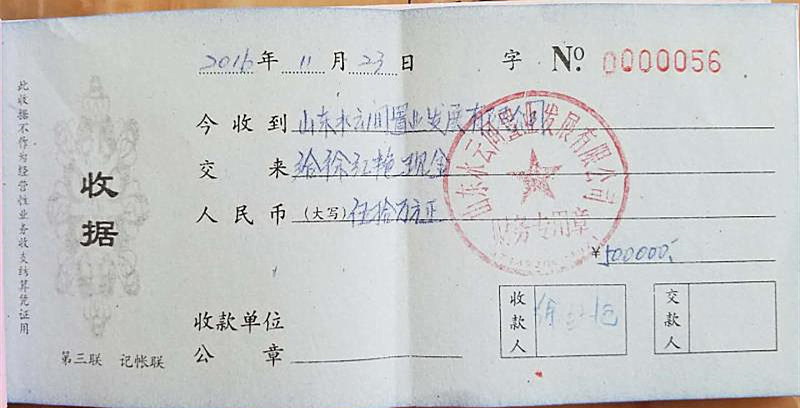 2016年11月23日 字 No. 0000056
今收到 山东水云间置业发展有限公司
交来 给徐红艳现金
人民币(大写)伍拾万元正
¥500000.
收款单位
公章
收款人
交款人
收据
此收据不作为经营性业务收支结算凭证用
第三联 记帐联
山东水云间置业发展有限公司
财务专用章